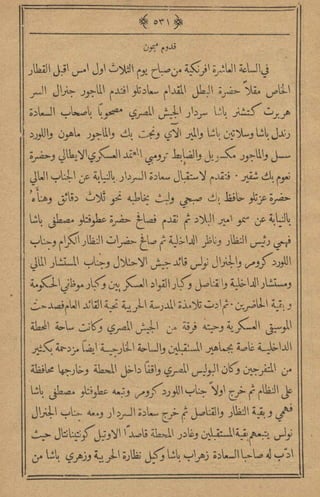 ﴿ ٥٣١ ﴾
قدوم ميمون
في الساعة العاشرة افرنكية من صباح يوم الثلاث اول امس اقبل القطار
الخاص مقلاً حضرة البطل المقدام سعادتلو افندم الماجور جنرال السر
هربرت كتشنر باشا سردار الجيش المصري مصحوباً باصحاب السعادة
رندل باشا وسلاتين باشا والمير الآي ونجت بك والماجور ماهون واللورد
سسل والماجور مكسريل والضابط ترومبي المعتمد العسكري الايطالي وحضرة
نعوم بك شقير • فتقدم لاستقبال سعادة السردار بالنيابة عن الجناب العالي
حضرة عزتلو حافظ بك صبحي ولبث يخاطبه نحو ثلاث دقائق وهنأه
بالنيابة عن سمو امير البلاد ثم تقدم فصافح حضرة عطوفتلو مصطفى باشا
فهمي رئيس النظار وناظر الداخلية ثم صافح حضرات النظار الكرام وجناب
اللورد كرومر والجنرال نولس قائد جيش الاحتلال وجناب المستشار المالي
ومستشار الداخلية والقناصل وكبار القواد العسكريين وكبار موظفي الحكومة
و بقية الحاضرين • ثم ادت تلامذة المدرسة الحربية تحية القائد العام فصدحت
الموسيقى العسكرية وحيته فرقة من الجيش المصري وكانت ساحة المحطة
الداخلية غاصة بجماهير المستقبلين والساحة الخارجية ايضاً مزدحمة بكثير
من المتفرجين وكان البوليس المصري واقفاً داخل المحطة وخارجها محافظة
على النظام ثم خرج اولاً جناب اللورد كرومر وتبعه عطوفتلو مصطفى باشا
فهمي و بقية النظار والقناصل ثم خرج سعادة السردار ومعه جناب الجنرال
نولس يتبعهم بقية المستقبلين وغادر المحطة قاصداً الاوتيل كونتيننتال حيث
ادب له صاحبا السعادة زهراب باشا وكيل نظارة الحربية وزهري باشا من